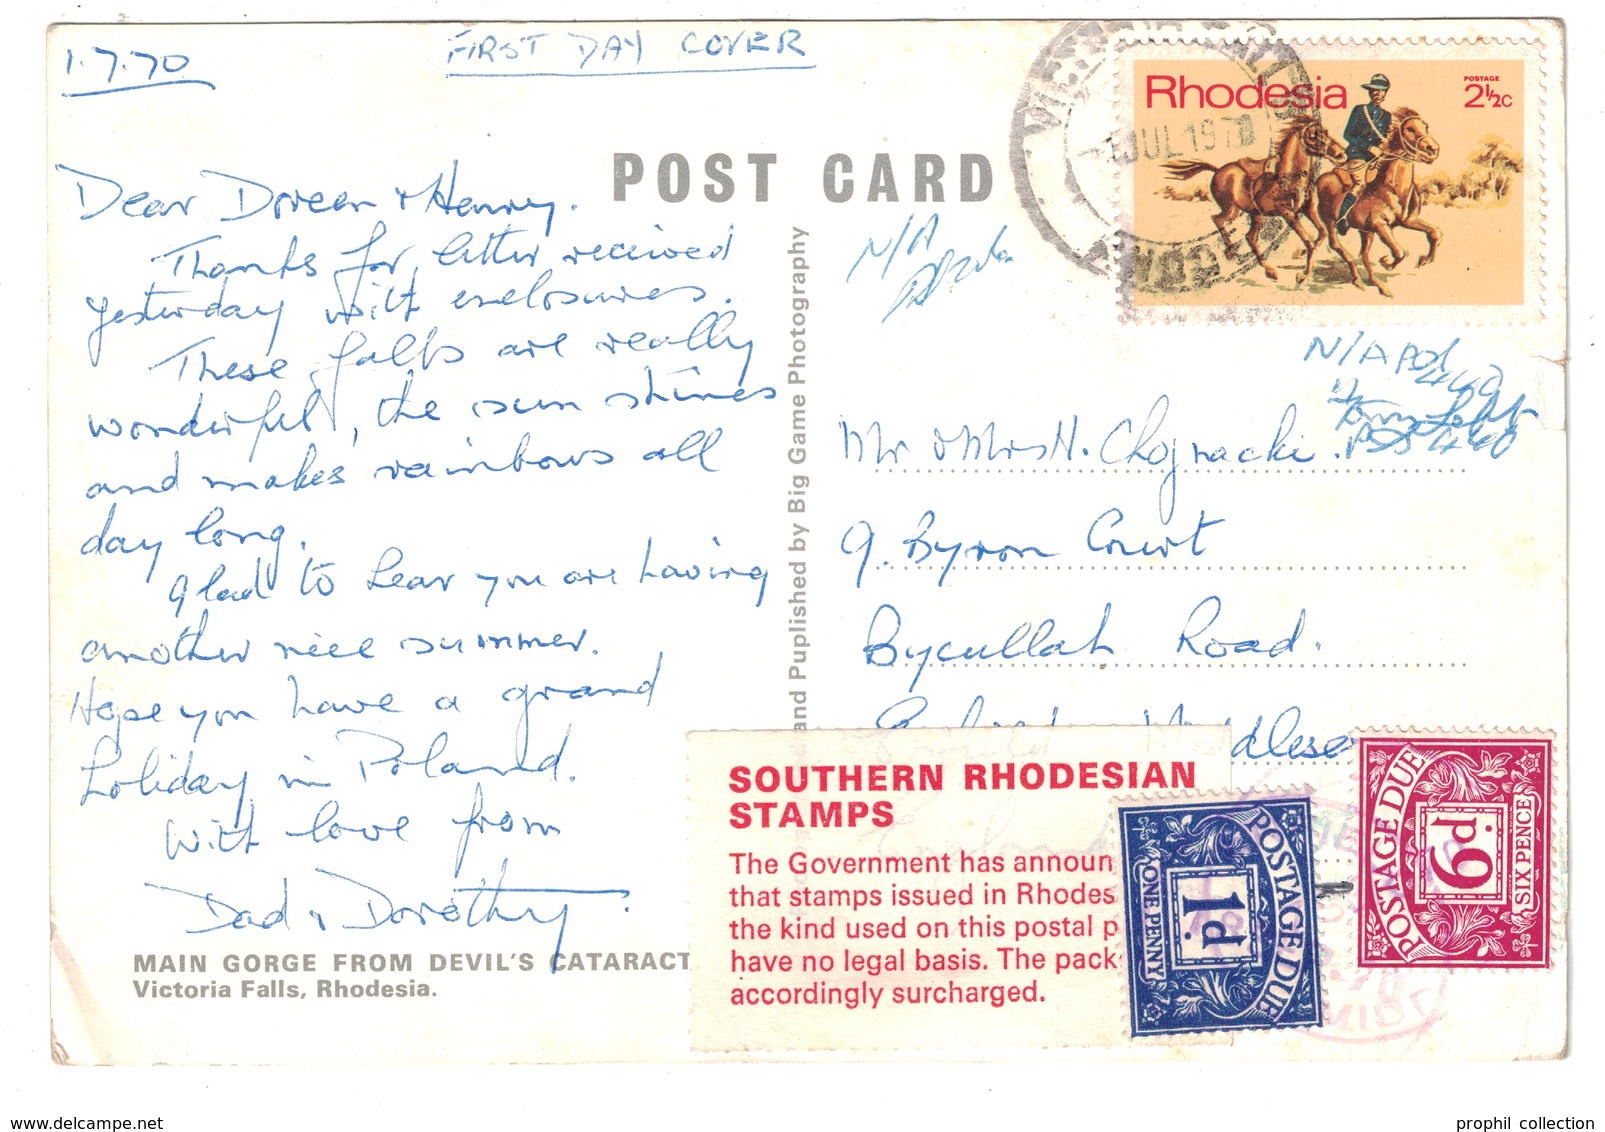 1.7.70
FIRST DAY COVER
POST CARD
Rhodesia
POSTAGE
2½c
JUL 197
Dear Doreen & Henry.
Thanks for letter received
yesterday with enclosures.
These falls are really
wonderful, the sun shines
and makes rainbows all
day long.
Glad to hear you are having
another nice summer.
Hope you have a grand
holiday in Poland.
With love from
Dad & Dorothy.
MAIN GORGE FROM DEVIL'S CATARACT
Victoria Falls, Rhodesia.
and Puplished by Big Game Photography
N/A
N/A
Mr & Mrs H. Chojnacki.
9. Byron Court
Bycullah Road.
SOUTHERN RHODESIAN
STAMPS
The Government has announ
that stamps issued in Rhodes
the kind used on this postal p
have no legal basis. The pack
accordingly surcharged.
POSTAGE DUE
1d.
ONE PENNY
POSTAGE DUE
6d
SIX PENCE
prophil collection